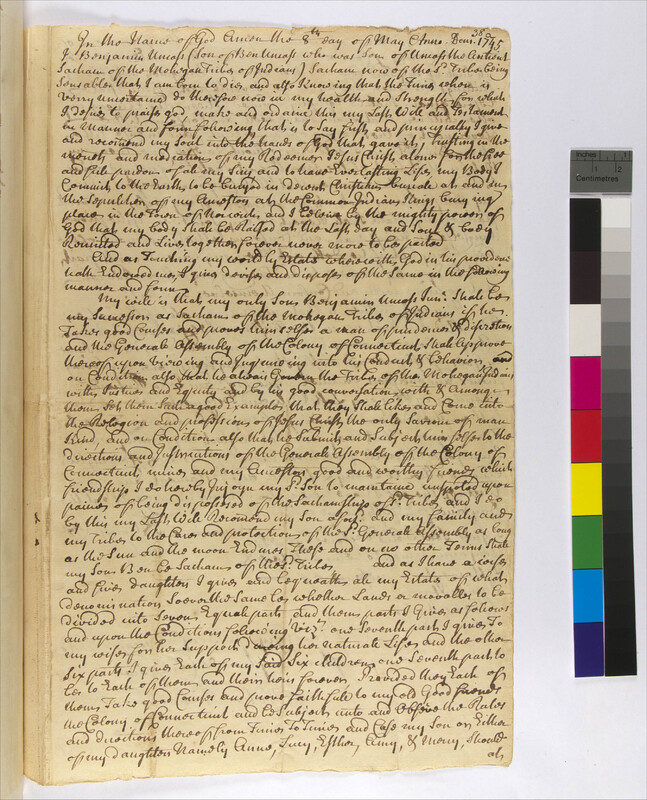 In the Name of God Amen the 8th day of May Anno. Domi. 1745
I Benjamin Uncass (Son of Ben Uncass who was Son of Uncass the Antient
Sacham of the Mohegan Tribe of Indians) Sacham now of the Sd. Tribe being
Sensable that I am born to die, and also Knowing that the Time when is
verry uncertaine do therefore now in my health and Strength, for which
I desire to praise god, make and ordaine this my Last Will and Testament
in Manner and form following that is to Say first and principally I give
and recomend my Soul into the hands of God that gave it, trusting in the
merits and mediation of my Redeemer Jesus Christ alone for the free
and full pardon of all my Sins and to have Everlasting Life, my Body I
Committ to the Earth, to be buryed in decent Christian buriale at and in
the Sepulcher of my Ancestors at the Common Indian Kings burying
place in the Town of Norwich, and I beleive by the mighty power of
God that my body Shall be Raised at the Last day and Soul & body
Reunited and Live together forever never more to be parted
And as Touching my worldly Estate wherewith God in his providence
hath Endowed me, I give devise and dispose of the Same in the following
manner and form
My will is that my only Son Benjamin Uncass Junr. Shall be
my Successor as Sacham of the Mohegan Tribe of Indians if he
Takes good Courses and proves himself as a man of prudence & discretion
and the Generale Assembly of the Colony of Connecticut Shall Approve
thereof upon viewing and inquireing into his Conduct & behavior, and
on Condition also that he always Govern the Tribe of the Mohegan Indians
with Justice and Equity and by his good conversation with & Among
them Set them Such a good Example that they Shall like and Come into
the Religion and profession of Jesus Christ the only Saviour of man
Kind, and on Condition also that he Submit and Subject himselfe to the
directions and Instructions of the Generale Assembly of the Colony of
Connecticut mine and my Ancestors good and worthy Friends which
friendship I do hereby Injoyn my Sd. Son to maintaine upon
paine of being dispossesed of the Sachamship of Sd. Tribe and I do
by this my Last Will Recomend my Son aforsd. and my family and
my Tribe to the Care and protection of the Sd. Generale Assembly as long
as the Sun and the moon Endures These and on no other Terms Shall
my Son Ben be Sacham of the Sd. Tribe and as I have a wife
and five daughters I give and bequeath all my Estate of what
denomination Soever the Same be whether Lands or movables to be
divided into Seven Equale parts and them parts I Give as follows
and upon the Conditions following Vizt. one Seventh part I give To
my wife for her Support during her naturale Life, and the other
Six parts I give Each of my Said Six children, one Seventh part to
be to Each of them and their heirs forever Provided they Each of
them Take good Courses and prove faithfull to my old Good friends
the Colony of Connecticut and be Subject unto and Observe the Rules
and directions thereof from Time To Time and Case my Son or Either
of my daughters Namely Anne, Lucy, Esther, Amy, & Mercy, Should
at
Inches
1
Centimetres
1
2